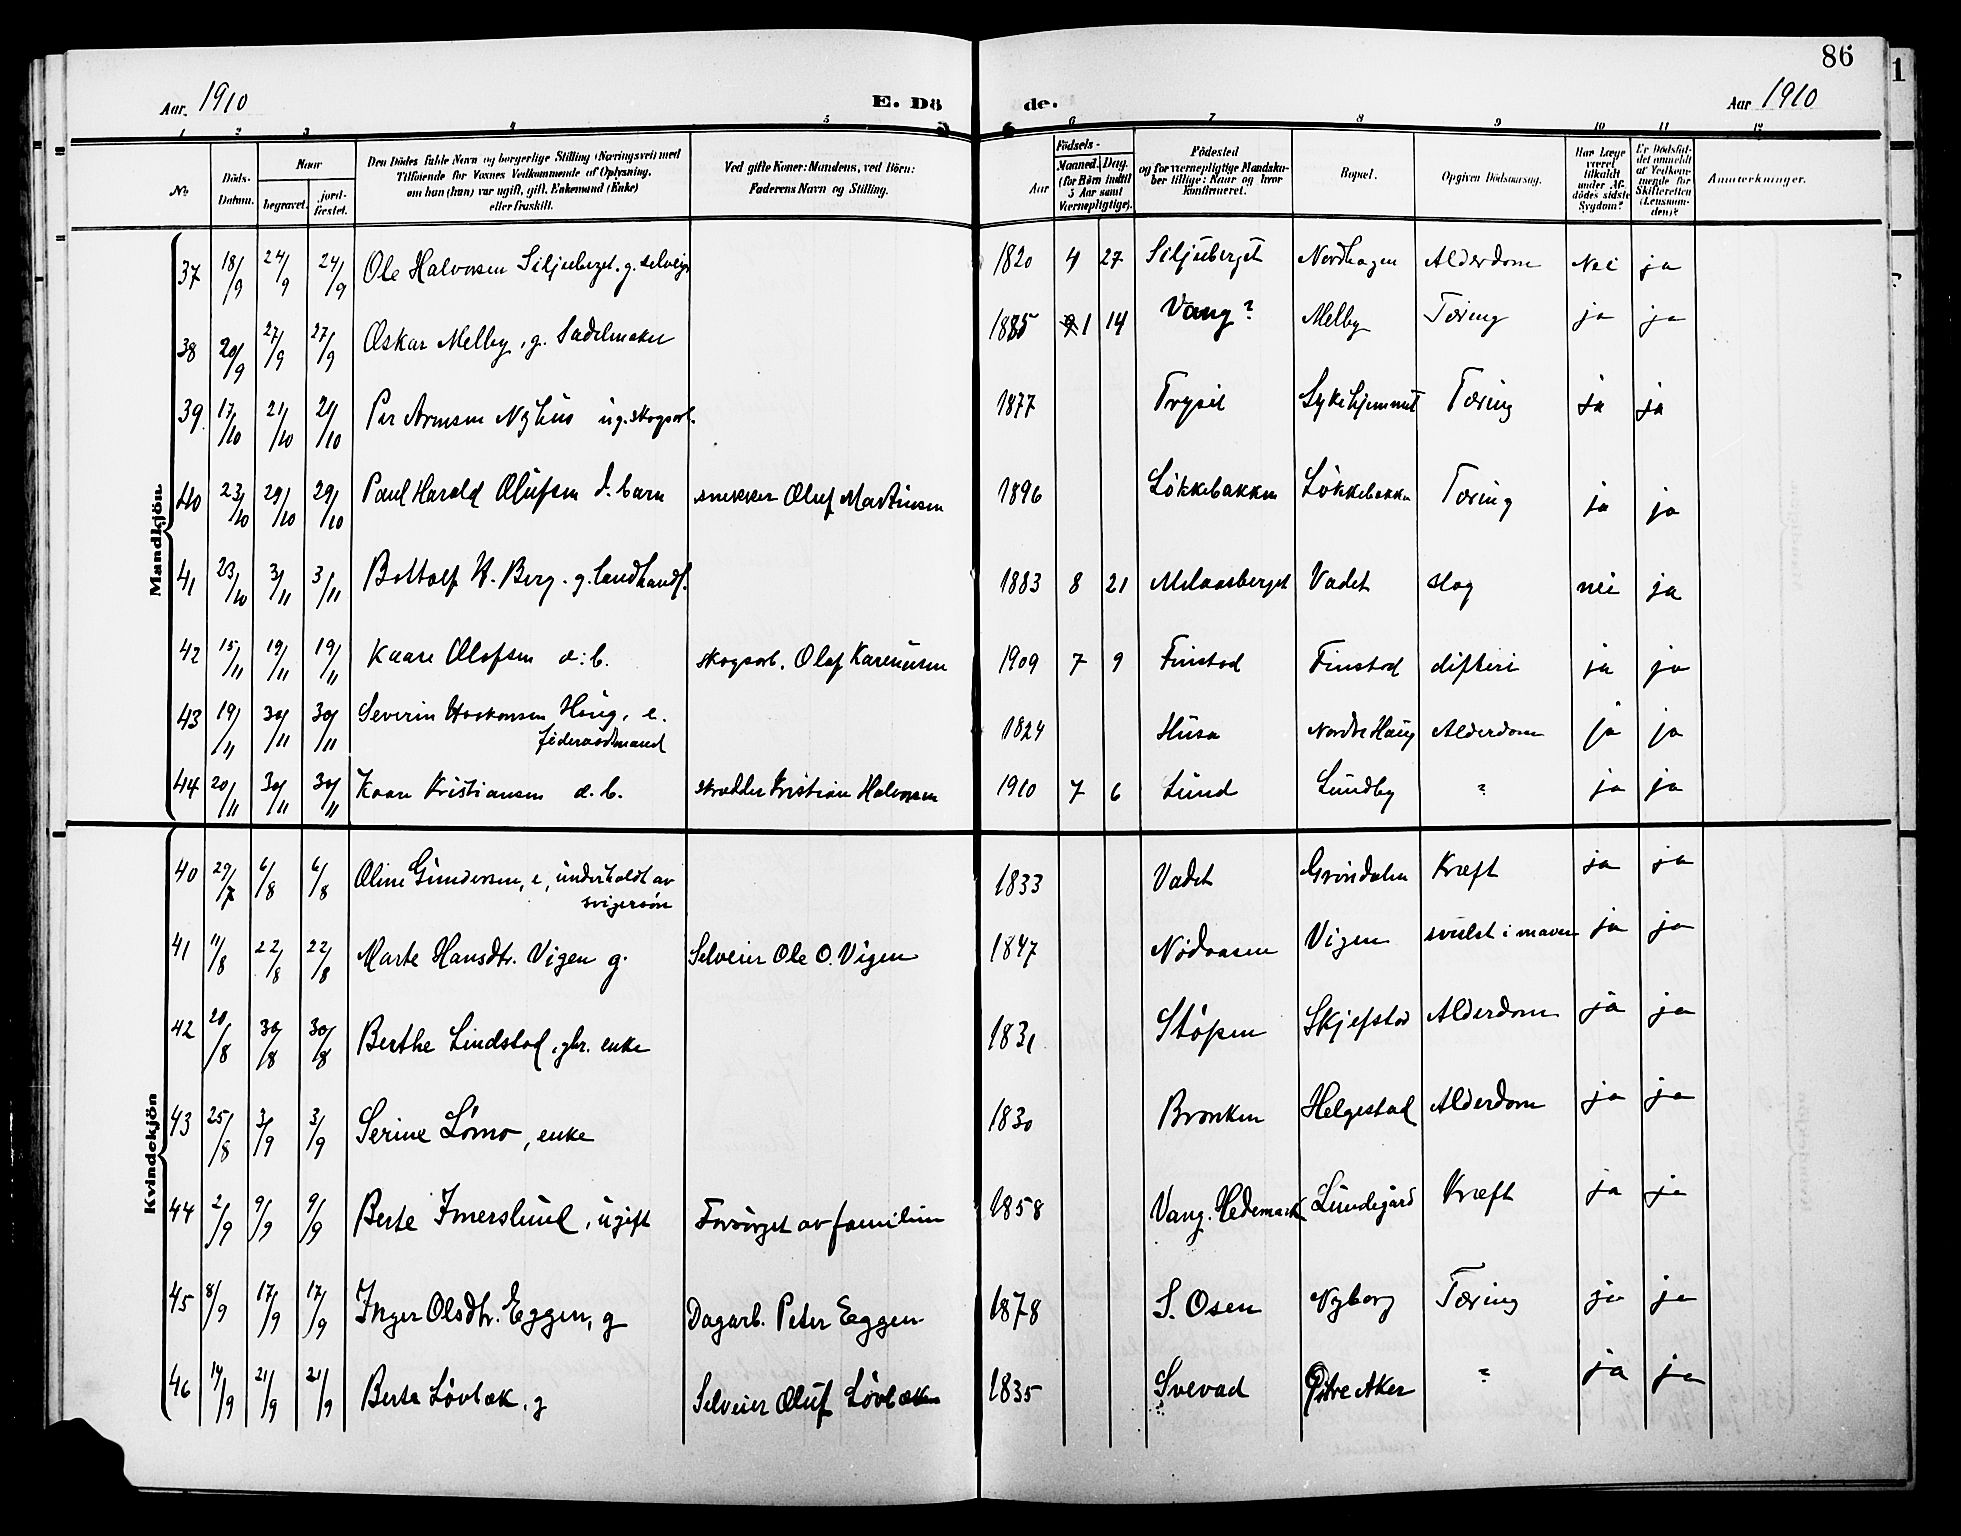 86
Aar. 1910
E. Dö
de.
Aar 1910
1 2 3 4 5 6 7 8 9 10 11 12
No
Döds-Datum.
Naar
begravet.
jord-fæstet.
Den Dödes fulde Navn og borgerlige Stilling (Næringsvei) med
Tilföiende for Voxnes Vedkommende af Oplysning,
om han (hun) var ugift, gift, Enkemand (Enke)
eller fraskilt.
Ved gifte Koner: Mandens, ved Börn:
Faderens Navn og Stilling.
Födsels-
Aar
Maaned. Dag.
(for Börn indtil
5 Aar samt
Værnepligtige).
Födested
og for værnepligtige Mandskaber tillige: Naar og hvor
konfirmeret.
Bopæl.
Opgiven Dödsaarsag.
Har Læge
været
tilkaldt
under Afdödes sidste
Sygdom?
Er Dödsfaldet anmeldt
af Vedkommende for
Skifteretten
(Lensmanden)?
Anmærkninger.
Mandkjön.
37 18/9 24/9 24/9 Ole Halvorsen Siljuberget. g. selveig. 1820 4 27 Siljuberget Nordhagen Alderdom Nei ja
38 20/9 27/9 27/9 Oskar Melby, g. Sadelmaker 1885 1 14 Vang? Melby Tæring ja ja
39 17/10 21/10 21/10 Per Arnesen Nyhus ug. skogsarb. 1877 Trysil Sykehjemmet Tæring ja ja
40 23/10 29/10 29/10 Paul Harald Olufsen d. barn snekker Oluf Martinsen 1896 Løkkebakken Løkkebakken Tæring ja ja
41 23/10 3/11 3/11 Bottolf H. Berg. g. landhandl. 1883 8 21 Melaasberget Vadet slag nei ja
42 15/11 19/11 19/11 Kaare Olafsen d. b. skogsarb. Olaf Kareniusen 1909 7 9 Finstad Finstad difteri ja ja
43 19/11 30/11 30/11 Severin Haakonsen Haug, e.
føderaadmand 1824 Husa Nordre Haug Alderdom ja ja
44 20/11 30/11 30/11 Kaare Kristiansen d. b. skrædder Kristian Halvorsen 1910 7 6 Lund Lundby ? ja ja
Kvindekjön
40 29/7 6/8 6/8 Oline Gundersen, e, underholdt av
svigersøn 1833 Vadet Grøndalen Kræft ja ja
41 11/8 22/8 22/8 Marte Hansdtr. Vigen g. Selveier Ole O. Vigen 1847 Nødaasen Vigen svulst i maven ja ja
42 20/8 30/8 30/8 Berthe Lindstad, gbr. enke 1831 Støpen Skjefstad Alderdom ja ja
43 25/8 3/9 3/9 Serine Lømo, enke 1830 Bronken Helgestad Alderdom ja ja
44 2/9 9/9 9/9 Berte Imerslund, ugift Forsørget av familien 1858 Vang. Hedemark Lundgård Kræft ja ja
45 8/9 17/9 17/9 Inger Olsdtr. Eggen, g Dagarb. Peter Eggen 1878 S. Osen Nyborg Tæring ja ja
46 14/9 21/9 21/9 Berte Løvbæk, g Selveier Oluf Løvbækn 1835 Svevad Østre Aker ? ja ja